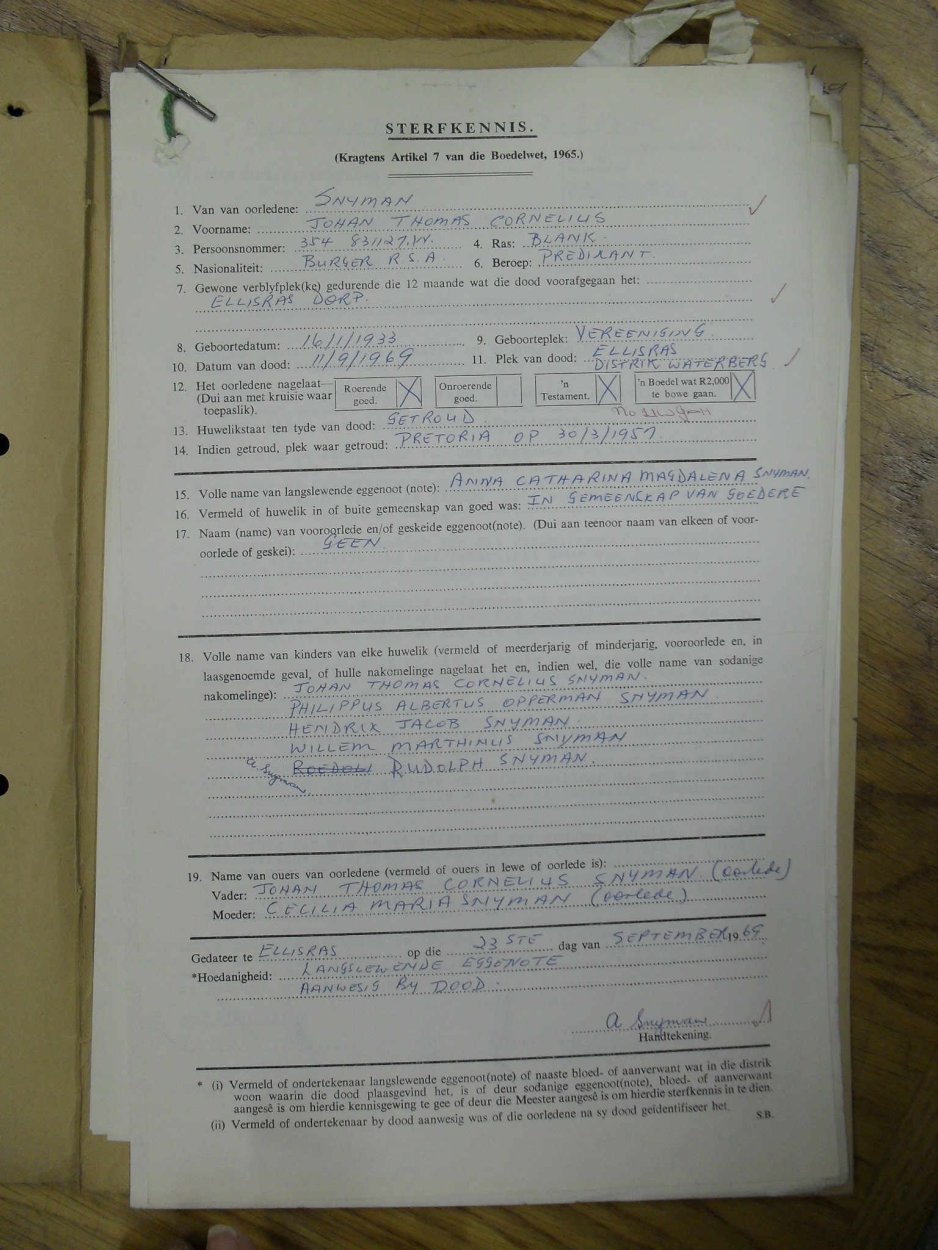 STERFKENNIS.
(Kragtens Artikel 7 van die Boedelwet, 1965.)
1. Van van oorledene: SNYMAN
2. Voorname: JOHAN THOMAS CORNELIUS
3. Persoonsnommer: 354 831127.W. 4. Ras: BLANK.
5. Nasionaliteit: BURGER R.S.A. 6. Beroep: PREDIKANT.
7. Gewone verblyfplek(ke) gedurende die 12 maande wat die dood voorafgegaan het:
ELLISRAS DORP.
8. Geboortedatum: 16/1/1933 9. Geboorteplek: VEREENIGING.
10. Datum van dood: 11/9/1969 11. Plek van dood: ELLISRAS
DISTRIK WATERBERG
12. Het oorledene nagelaat— (Dui aan met kruisie waar toepaslik). Roerende goed. X Onroerende goed. 'n Testament. X 'n Boedel wat R2,000 te bowe gaan. X
13. Huwelikstaat ten tyde van dood: GETROUD
14. Indien getroud, plek waar getroud: PRETORIA OP 30/3/1957.
15. Volle name van langslewende eggenoot (note): ANNA CATHARINA MAGDALENA SNYMAN
16. Vermeld of huwelik in of buite gemeenskap van goed was: IN GEMEENSKAP VAN GOEDERE
17. Naam (name) van vooroorlede en/of geskeide eggenoot(note). (Dui aan teenoor naam van elkeen of voor-
oorlede of geskei): GEEN
18. Volle name van kinders van elke huwelik (vermeld of meerderjarig of minderjarig, vooroorlede en, in
laasgenoemde geval, of hulle nakomelinge nagelaat het en, indien wel, die volle name van sodanige
nakomelinge): JOHAN THOMAS CORNELIUS SNYMAN.
PHILIPPUS ALBERTUS OPPERMAN SNYMAN
HENDRIK JACOB SNYMAN
WILLEM MARTHINUS SNYMAN
a Snyman RUDOLPH SNYMAN.
19. Name van ouers van oorledene (vermeld of ouers in lewe of oorlede is):
Vader: JOHAN THOMAS CORNELIUS SNYMAN (oorlede)
Moeder: CECILIA MARIA SNYMAN (oorlede)
Gedateer te ELLISRAS op die 23 STE dag van SEPTEMBER 1969
*Hoedanigheid: LANGSLEWENDE EGGENOTE
AANWESIG BY DOOD.
a Snyman
Handtekening.
* (i) Vermeld of ondertekenaar langslewende eggenoot(note) of naaste bloed- of aanverwant wat in die distrik
woon waarin die dood plaasgevind het, is of deur sodanige eggenoot(note), bloed- of aanverwant
aangesê is om hierdie kennisgewing te gee of deur die Meester aangesê is om hierdie sterfkennis in te dien.
(ii) Vermeld of ondertekenaar by dood aanwesig was of die oorledene na sy dood geïdentifiseer het.
S.B.